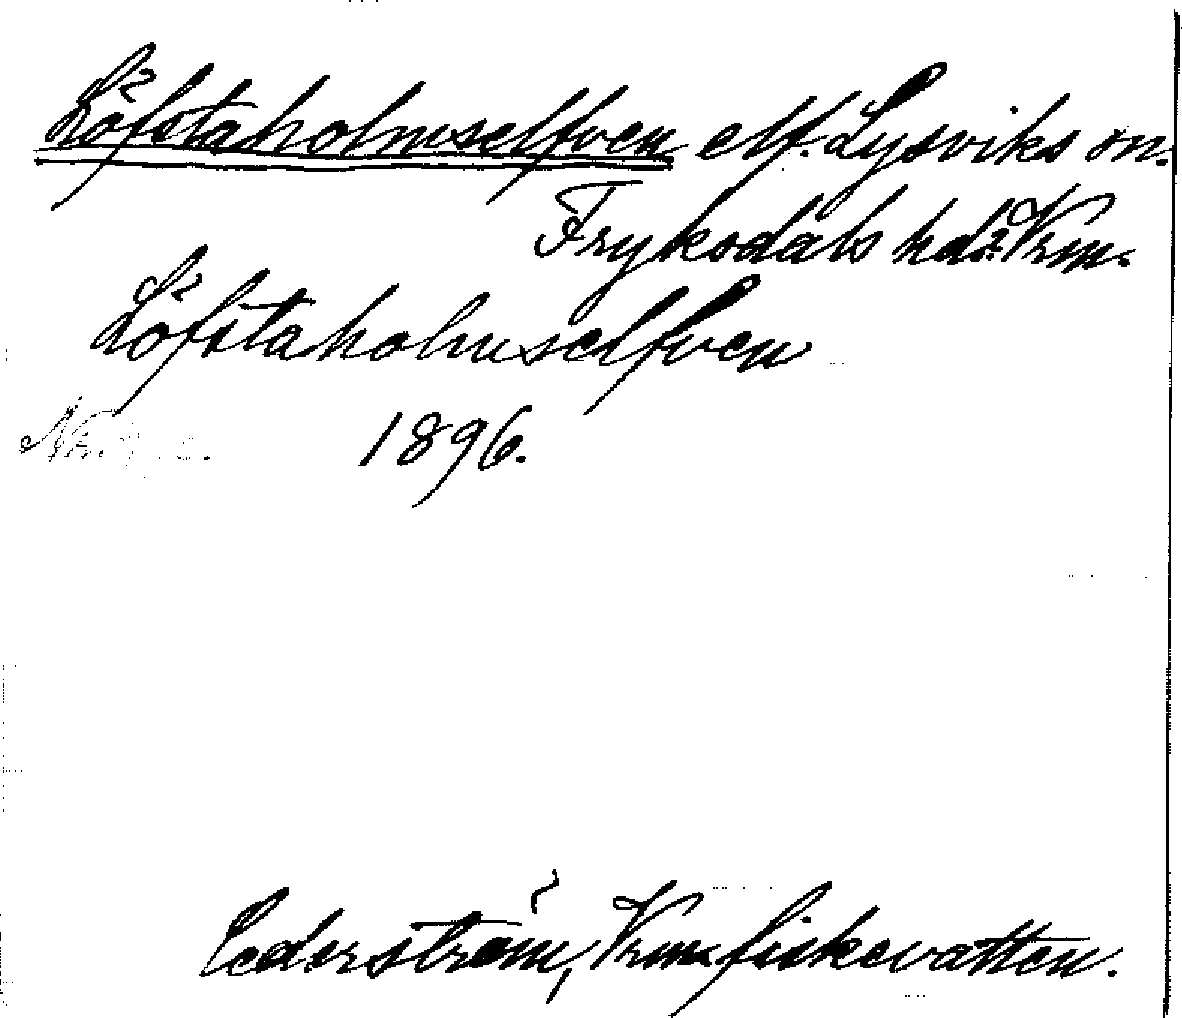 Löfstaholmselfven elf. Lysviks sn.
Fryksdals hd: Vrm.
Löfstaholmselfven
1896.
Cederström, Vrms fiskevatten.